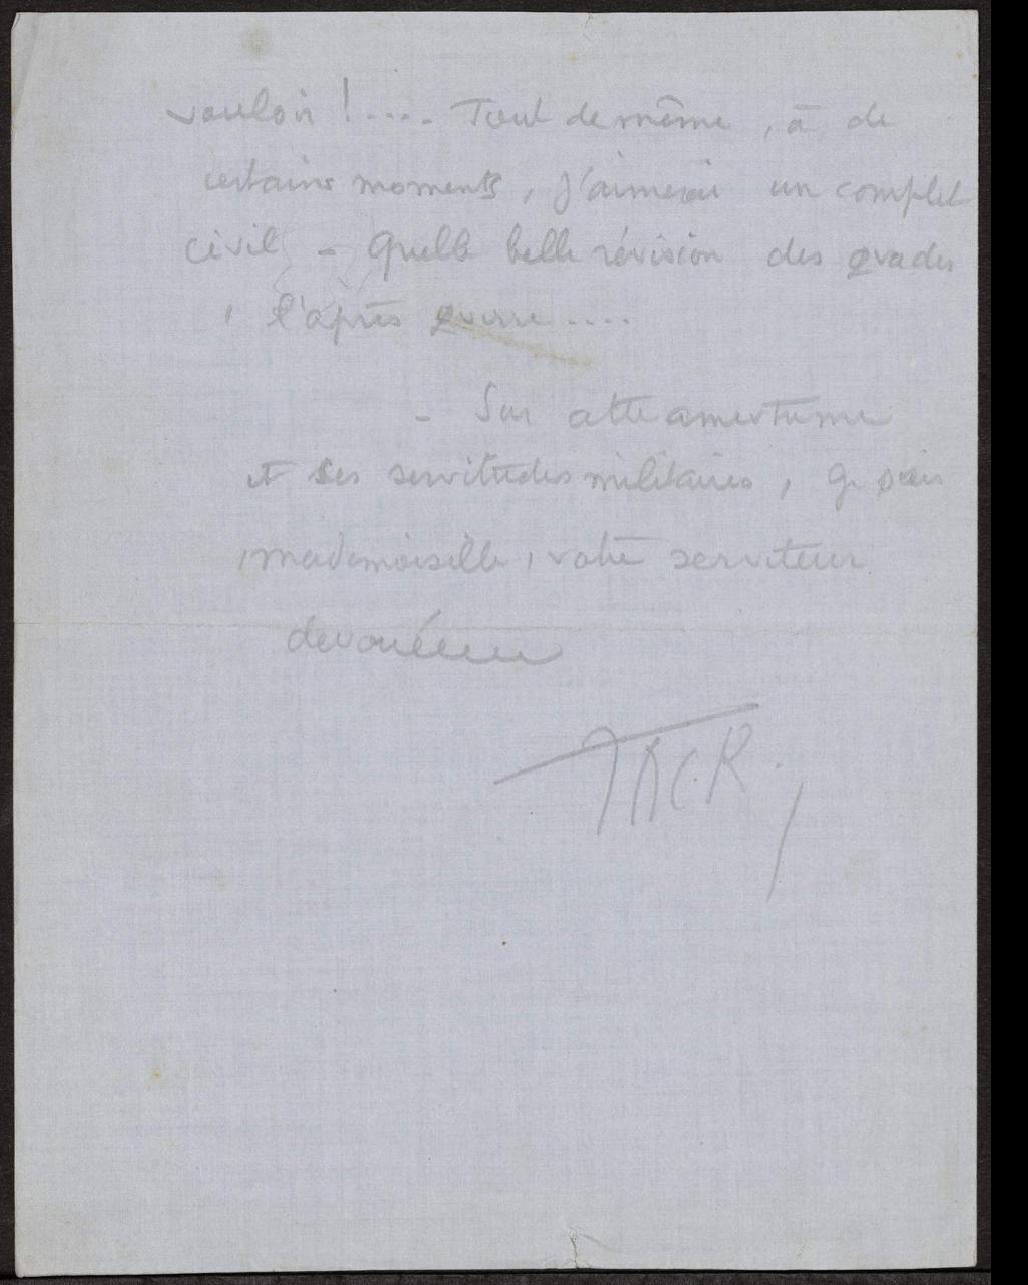 vouloir !.... Tout de même, à de
certains moments, j'aimerai un complet
civil - Quelle belle révision des grades
, l'après guerre....
- Sur cette amertume
et ses servitudes militaires, je suis
, mademoiselle, votre serviteur
devoué